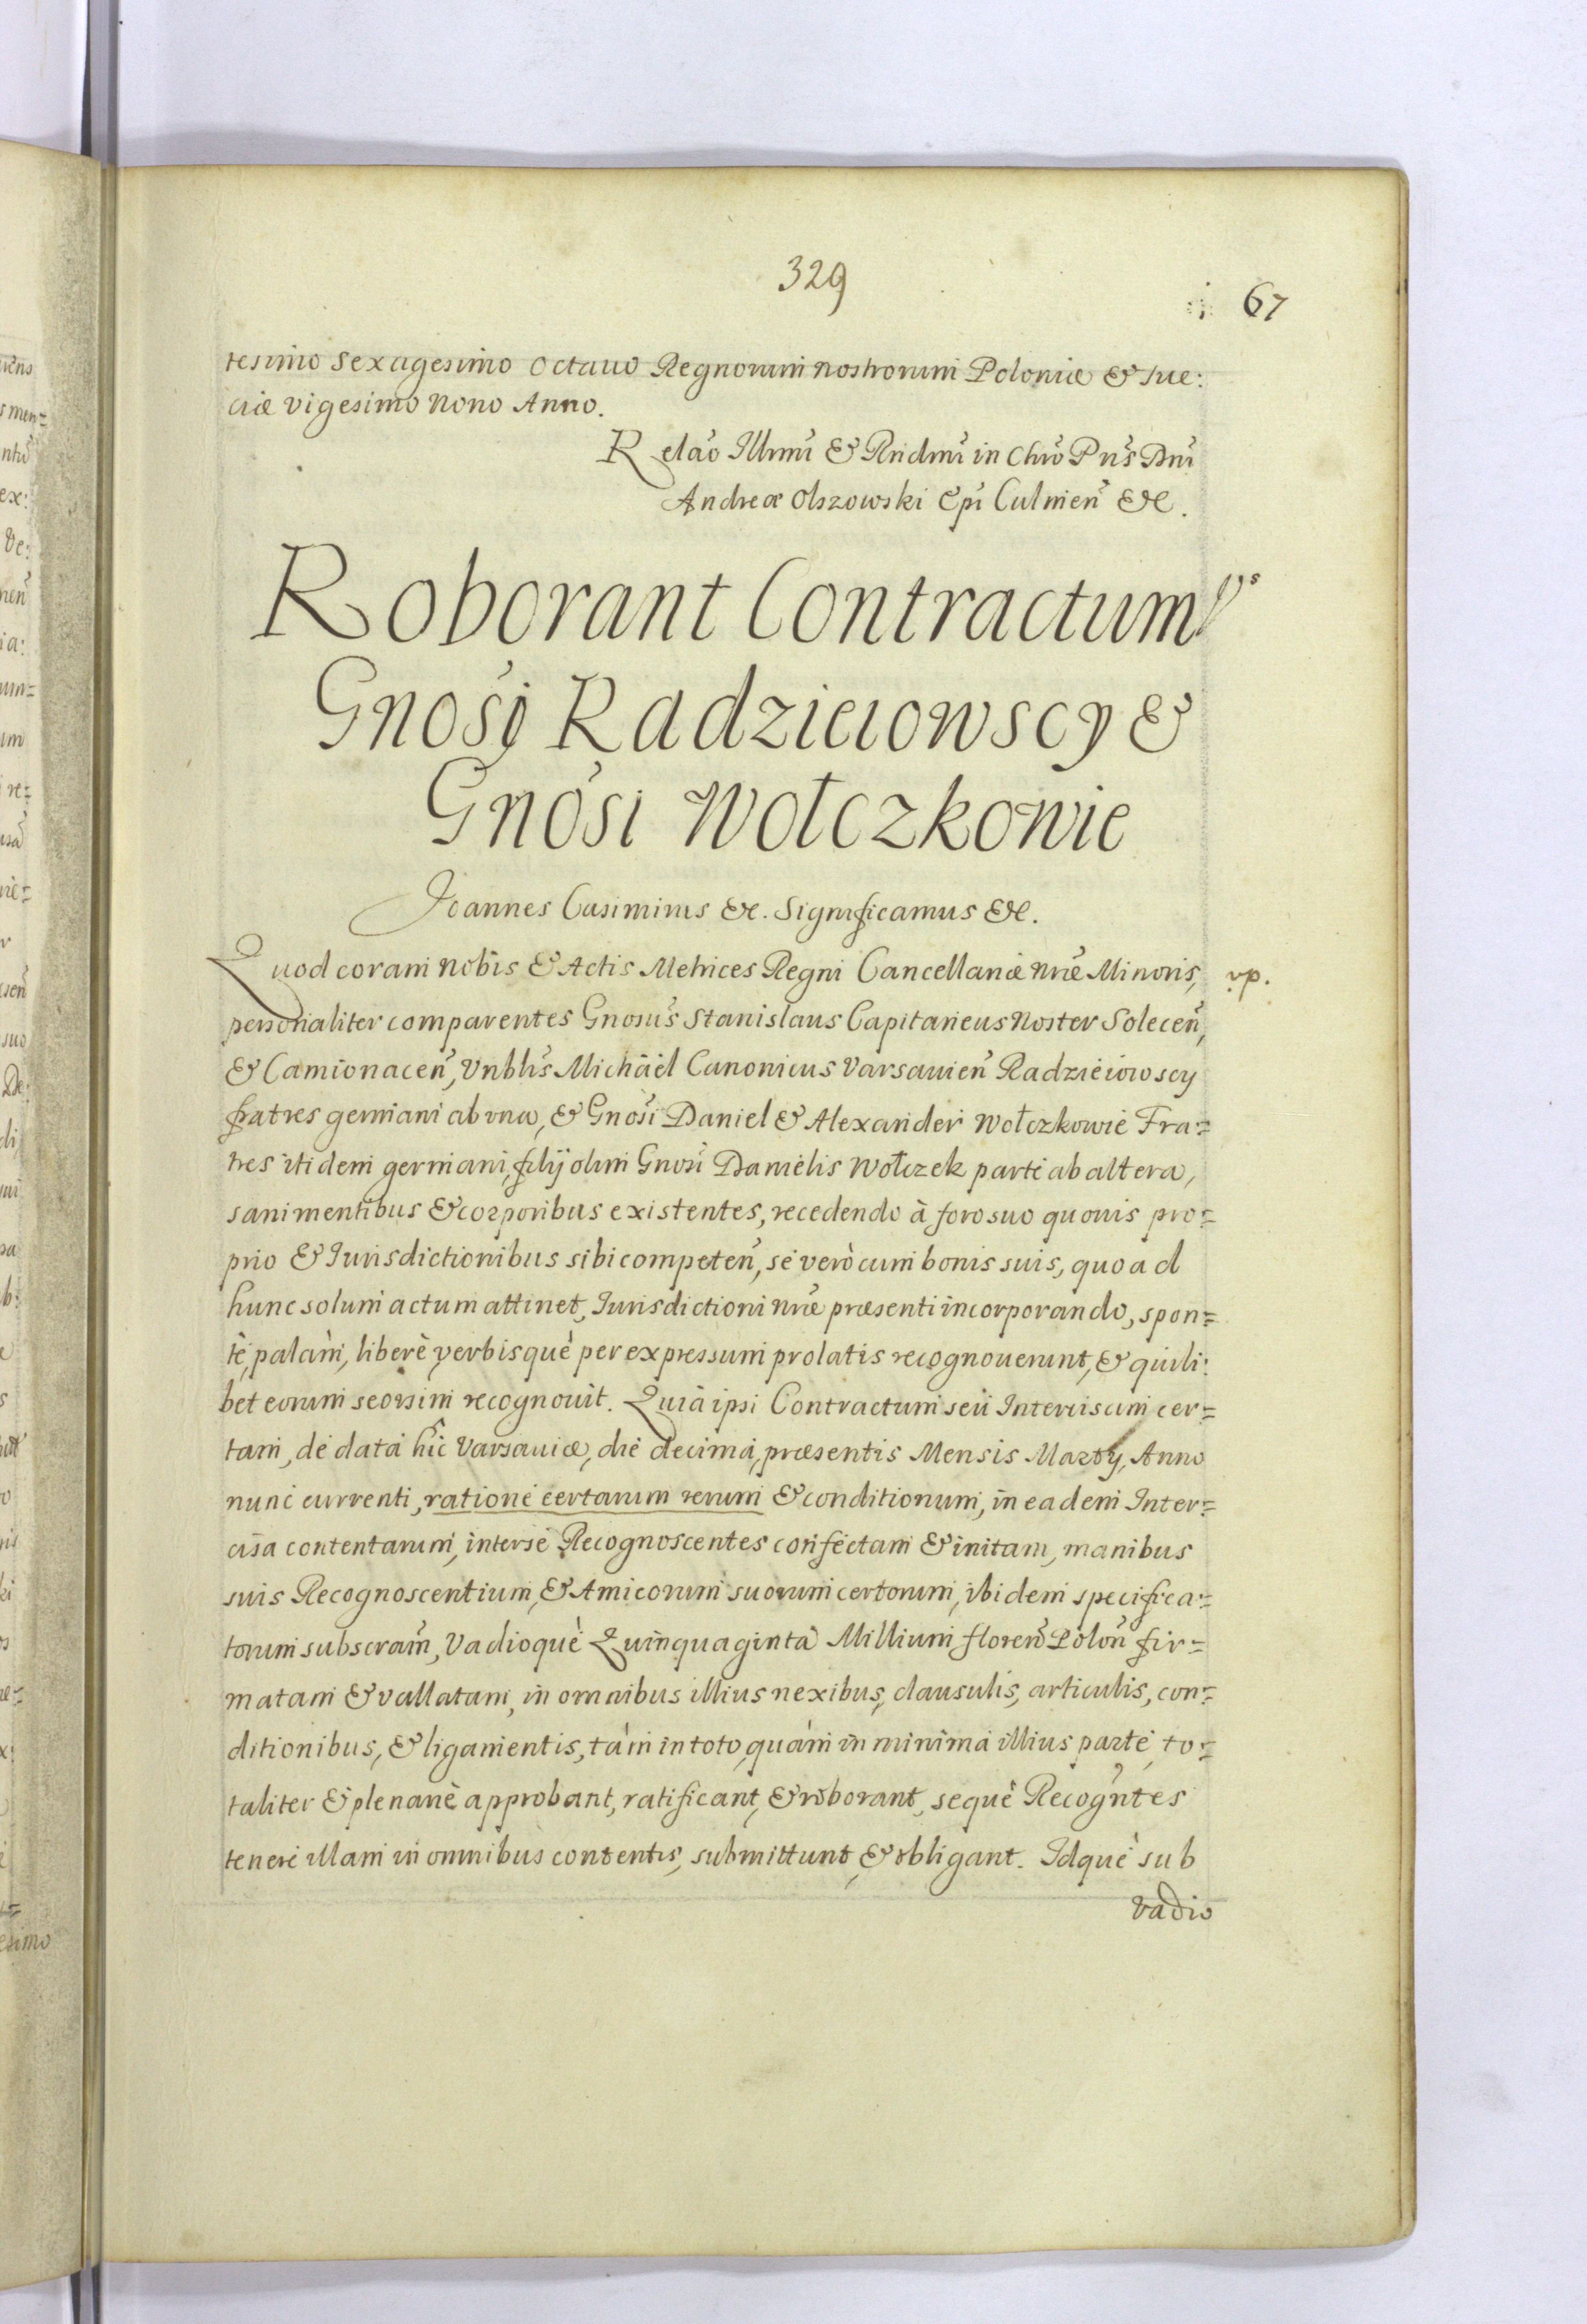 329
67
tesimo sexagesimo octauo Regnorum nostrorum Poloniæ & Sue:
ciæ vigesimo nono Anno.
Relao Illrmi & Rndmi in Chro Pris Dni
Andreæ Olszowski Epi Culmen &c.
Roborant Contractum
Gnosi Radzieiowscy &
Gnosi Wołczkowie
Joannes Casimirus &c. Significamus &c.
Quod coram nobis & Actis Metrices Regni Cancellariæ nræ Minoris,
vp.
personaliter comparentes Gnosus Stanislaus Capitaneus Noster Solecen,
& Camionacen, Vnblis Michaël Canonicus Varsauien Radzieiowscy
fratres germani ab vna, & Gnosi Daniel & Alexander Wołczkowie Fra=
tres itidem germani, filij olim Gnosi Danielis Wołczek parte ab altera,
sani mentibus & corporibus existentes, recedendo à foro suo quouis pro=
prio & Iurisdictionibus sibi competen, se verò cum bonis suis, quo ad
hunc solum actum attinet, Iurisdictioni nræ præsenti incorporando, spon=
tè, palàm, liberè verbisquè per expressum prolatis recognouerunt, & quili:
bet eorum seorsim recognouit. Quia ipsi Contractum seù Intercisam cer=
tam, de data hîc Varsauiæ, die decima, præsentis Mensis Martij, Anno
nunc currenti, ratione certarum rerum & conditionum, in eadem Inter=
cisa contentarum, inter se Recognoscentes confectam & initam, manibus
suis Recognoscentium, & Amicorum suorum certorum, ibidem specifica=
torum subscram, Vadioquè Quinquaginta Millium floren Polon fir=
matam & vallatam, in omnibus illius nexibus, clausulis, articulis, con=
ditionibus, & ligamentis, tàm in toto, quàm in minima illius parte, to=
taliter & plenariè approbant, ratificant, & roborant, sequè Recogntes
tenere illam in omnibus contentis, submittunt, & obligant. Idquè sub
vadio